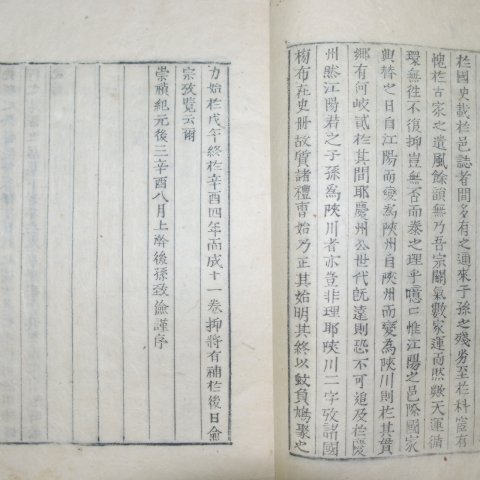 於國史載於邑誌者間多有之逋來子孫之殘劣至於科宦有
愧於古家之遺風餘韻無乃吾宗關氣數家運而然歟天運循
環無往不復抑豈無否而泰之理乎噫曰惟江陽之邑際國家
興替之日自江陽而變為陜州自陜州而變為陜川則於其貫
鄕有何岐貳於其間耶慶州公世代旣遠則恐不可追及於慶
州然江陽君之子孫為陜川者亦豈非理耶陜川二字攷諸國
榜布在史冊故質諸禮曹始乃正其始明其終以蚊負鳩聚之
力始於戊午終於辛酉四年而成十一卷抑將有補於後日僉
宗攷覽云爾
崇禎紀元後三辛酉八月上澣後孫致儉謹序